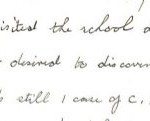 isited the school a
desired to discover
still 1 case of C.